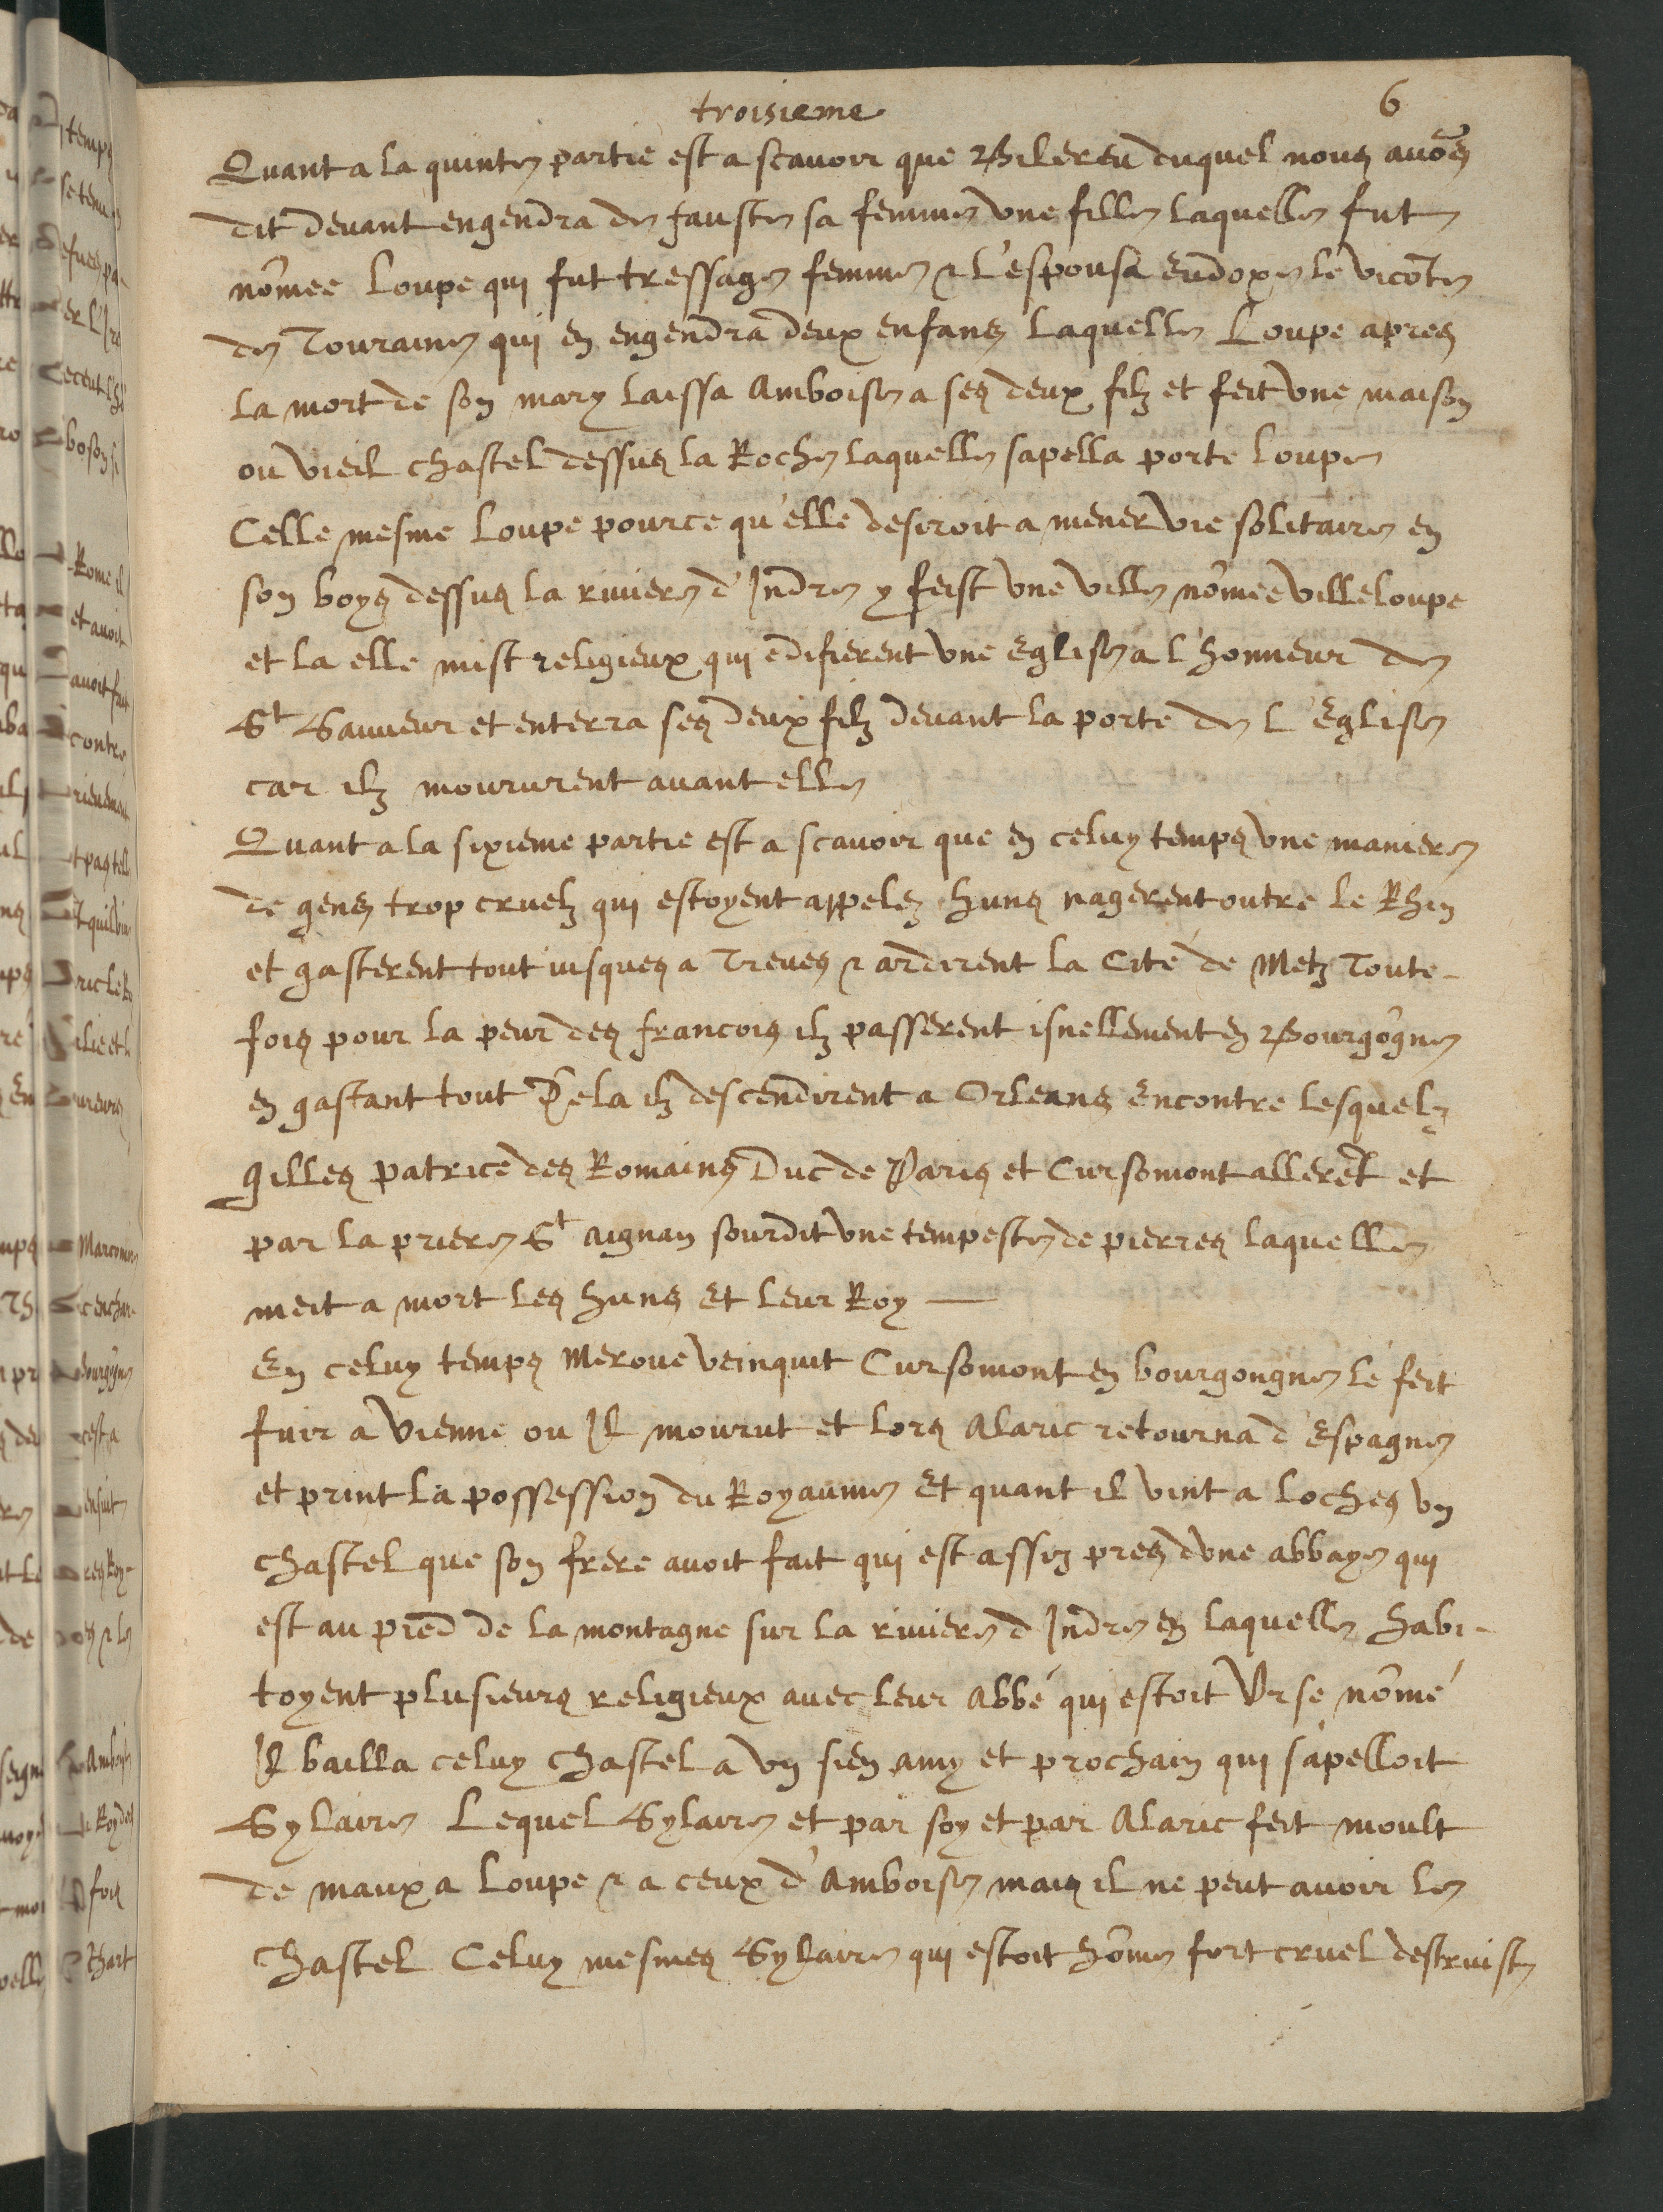 troisieme
6
Quant a la quinte partie est a scavoir que Bilereu duquel nous avõs
dit devant engendra de fauste sa femme une fille laquelle fut
nõmee Loupe qui fut tressage femme & L'espousa Eudoxe le viconte
de Touraine qui en engendra deux enfans Laquelle Loupe apres
la mort de son mary laissa Amboise a ses deux filz et feit une maison
ou vieil chastel dessus la Roche laquelle sapella porte loupe
Celle mesme loupe pource qu'elle desiroit a mener vie solitaire en
son boys dessus la riviere d'Indre y feist une ville nõmee villeloupe
et la elle mist religieux qui edifierent une Eglise a l'honneur de
St Sauveur et enterra ses deux filz devant la porte de L'Eglise
car ilz moururent avant elle
Quant a la sixieme partie est a scavoir que en celuy temps une maniere
de gens trop cruelz qui estoyent appelez Huns nagerent outre le Rhin
et gasterent tout iusques a Treves & ardirent la Cité de Metz Toute-
fois pour la peur des francois ilz passerent isnellement en Bourgõgne
en gastant tout Dela ilz descendirent a Orleans Encontre lesquelz
Gilles patrice des Romains Duc de Paris et Cursomont allerẽt et
par la priere St Aignan sourdit une tempeste de pierres laquelle
meit a mort les Huns Et leur Roy —
En celuy temps Merove veinquit Cursomont en bourgongne le feit
fuir a Vienne ou Il mourut et lors Alaric retourna d'Espagne
et print la possession du Royaume Et quant il vint a Loches un
chastel que son frere avoit fait qui est assiz pres d'une abbaye qui
est au pied de la montagne sur la riviere d'Indre en laquelle habi-
toyent plusieurs religieux avec leur Abbé qui estoit Urse nõmé
Il bailla celuy chastel a un sien amy et prochain qui s'apelloit
Sylaire Lequel Sylaire et par soy et par Alaric feit moult
de maux a Loupe & a ceux d'Amboise mais il ne peut avoir le
chastel Celuy mesmes Sylaire qui estoit hõme fort cruel destruist